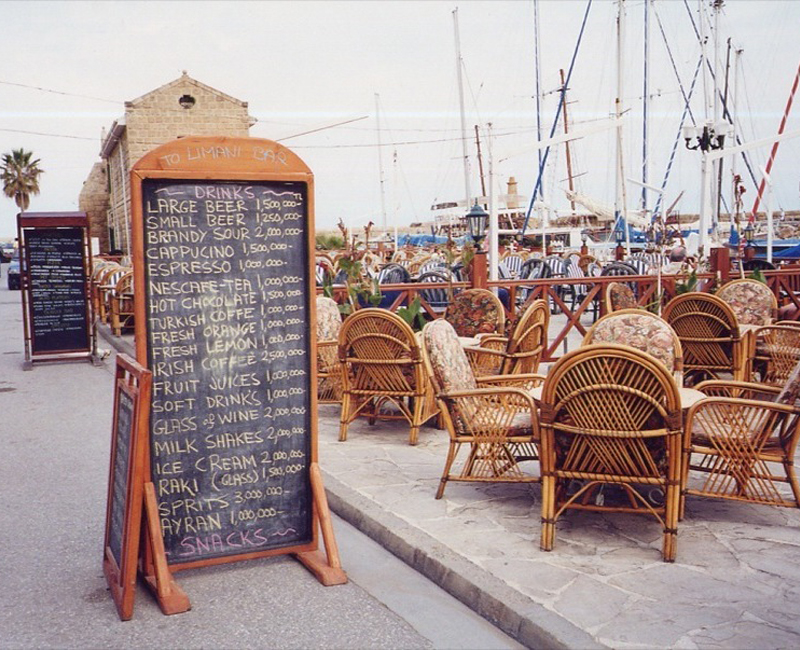 TO LIMANI BAR
~ DRINKS ~
LARGE BEER 1,500,000-TL
SMALL BEER 1,250,000-
BRANDY SOUR 2,000,000-
CAPPUCINO 1,500,000-
ESPRESSO 1,000,000-
NESCAFE-TEA 1,000,000-
HOT CHOCOLATE 1,500,000-
TURKISH COFFE 1,000,000-
FRESH ORANGE 1,000,000-
FRESH LEMON 1,000,000-
IRISH COFFEE 2,500,000-
FRUIT JUICES 1,000,000-
SOFT DRINKS 1,000,000-
GLASS of WINE 2,000,000-
MILK SHAKES 2,000,000-
ICE CREAM 2,000,000-
RAKI (GLASS) 1,500,000-
SPRITS 3,000,000-
AYRAN 1,000,000-
SNACKS ~